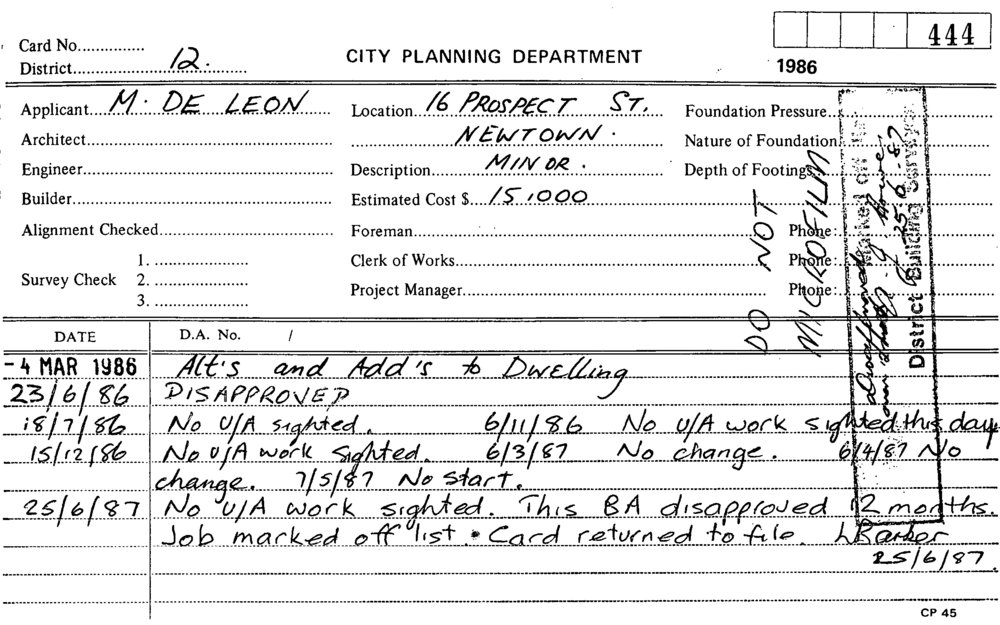 444
Card No...............
District 12.
CITY PLANNING DEPARTMENT
1986
Applicant M. DE LEON
Location 16 PROSPECT ST.
Foundation Pressure
Architect
NEWTOWN.
Nature of Foundation
Engineer
Description MINOR.
Depth of Footings
Builder
Estimated Cost $ 15,000
Alignment Checked
Foreman
Phone:
Clerk of Works
Phone:
Survey Check 1.
2.
3.
Project Manager
Phone:
DO NOT
MICROFILM
Marked off
25-6-87
District Building Surveyor
DATE D.A. No. /
-4 MAR 1986 Alt's and Add's to Dwelling
23/6/86 DISAPPROVED
18/7/86 No U/A sighted. 6/11/86 No U/A work sighted this day
15/12/86 No U/A work sighted. 6/3/87 No change. 6/4/87 No
change. 7/5/87 No start.
25/6/87 No U/A work sighted. This BA disapproved 12 months.
Job marked off list. Card returned to file. L Barber
25/6/87.
CP 45